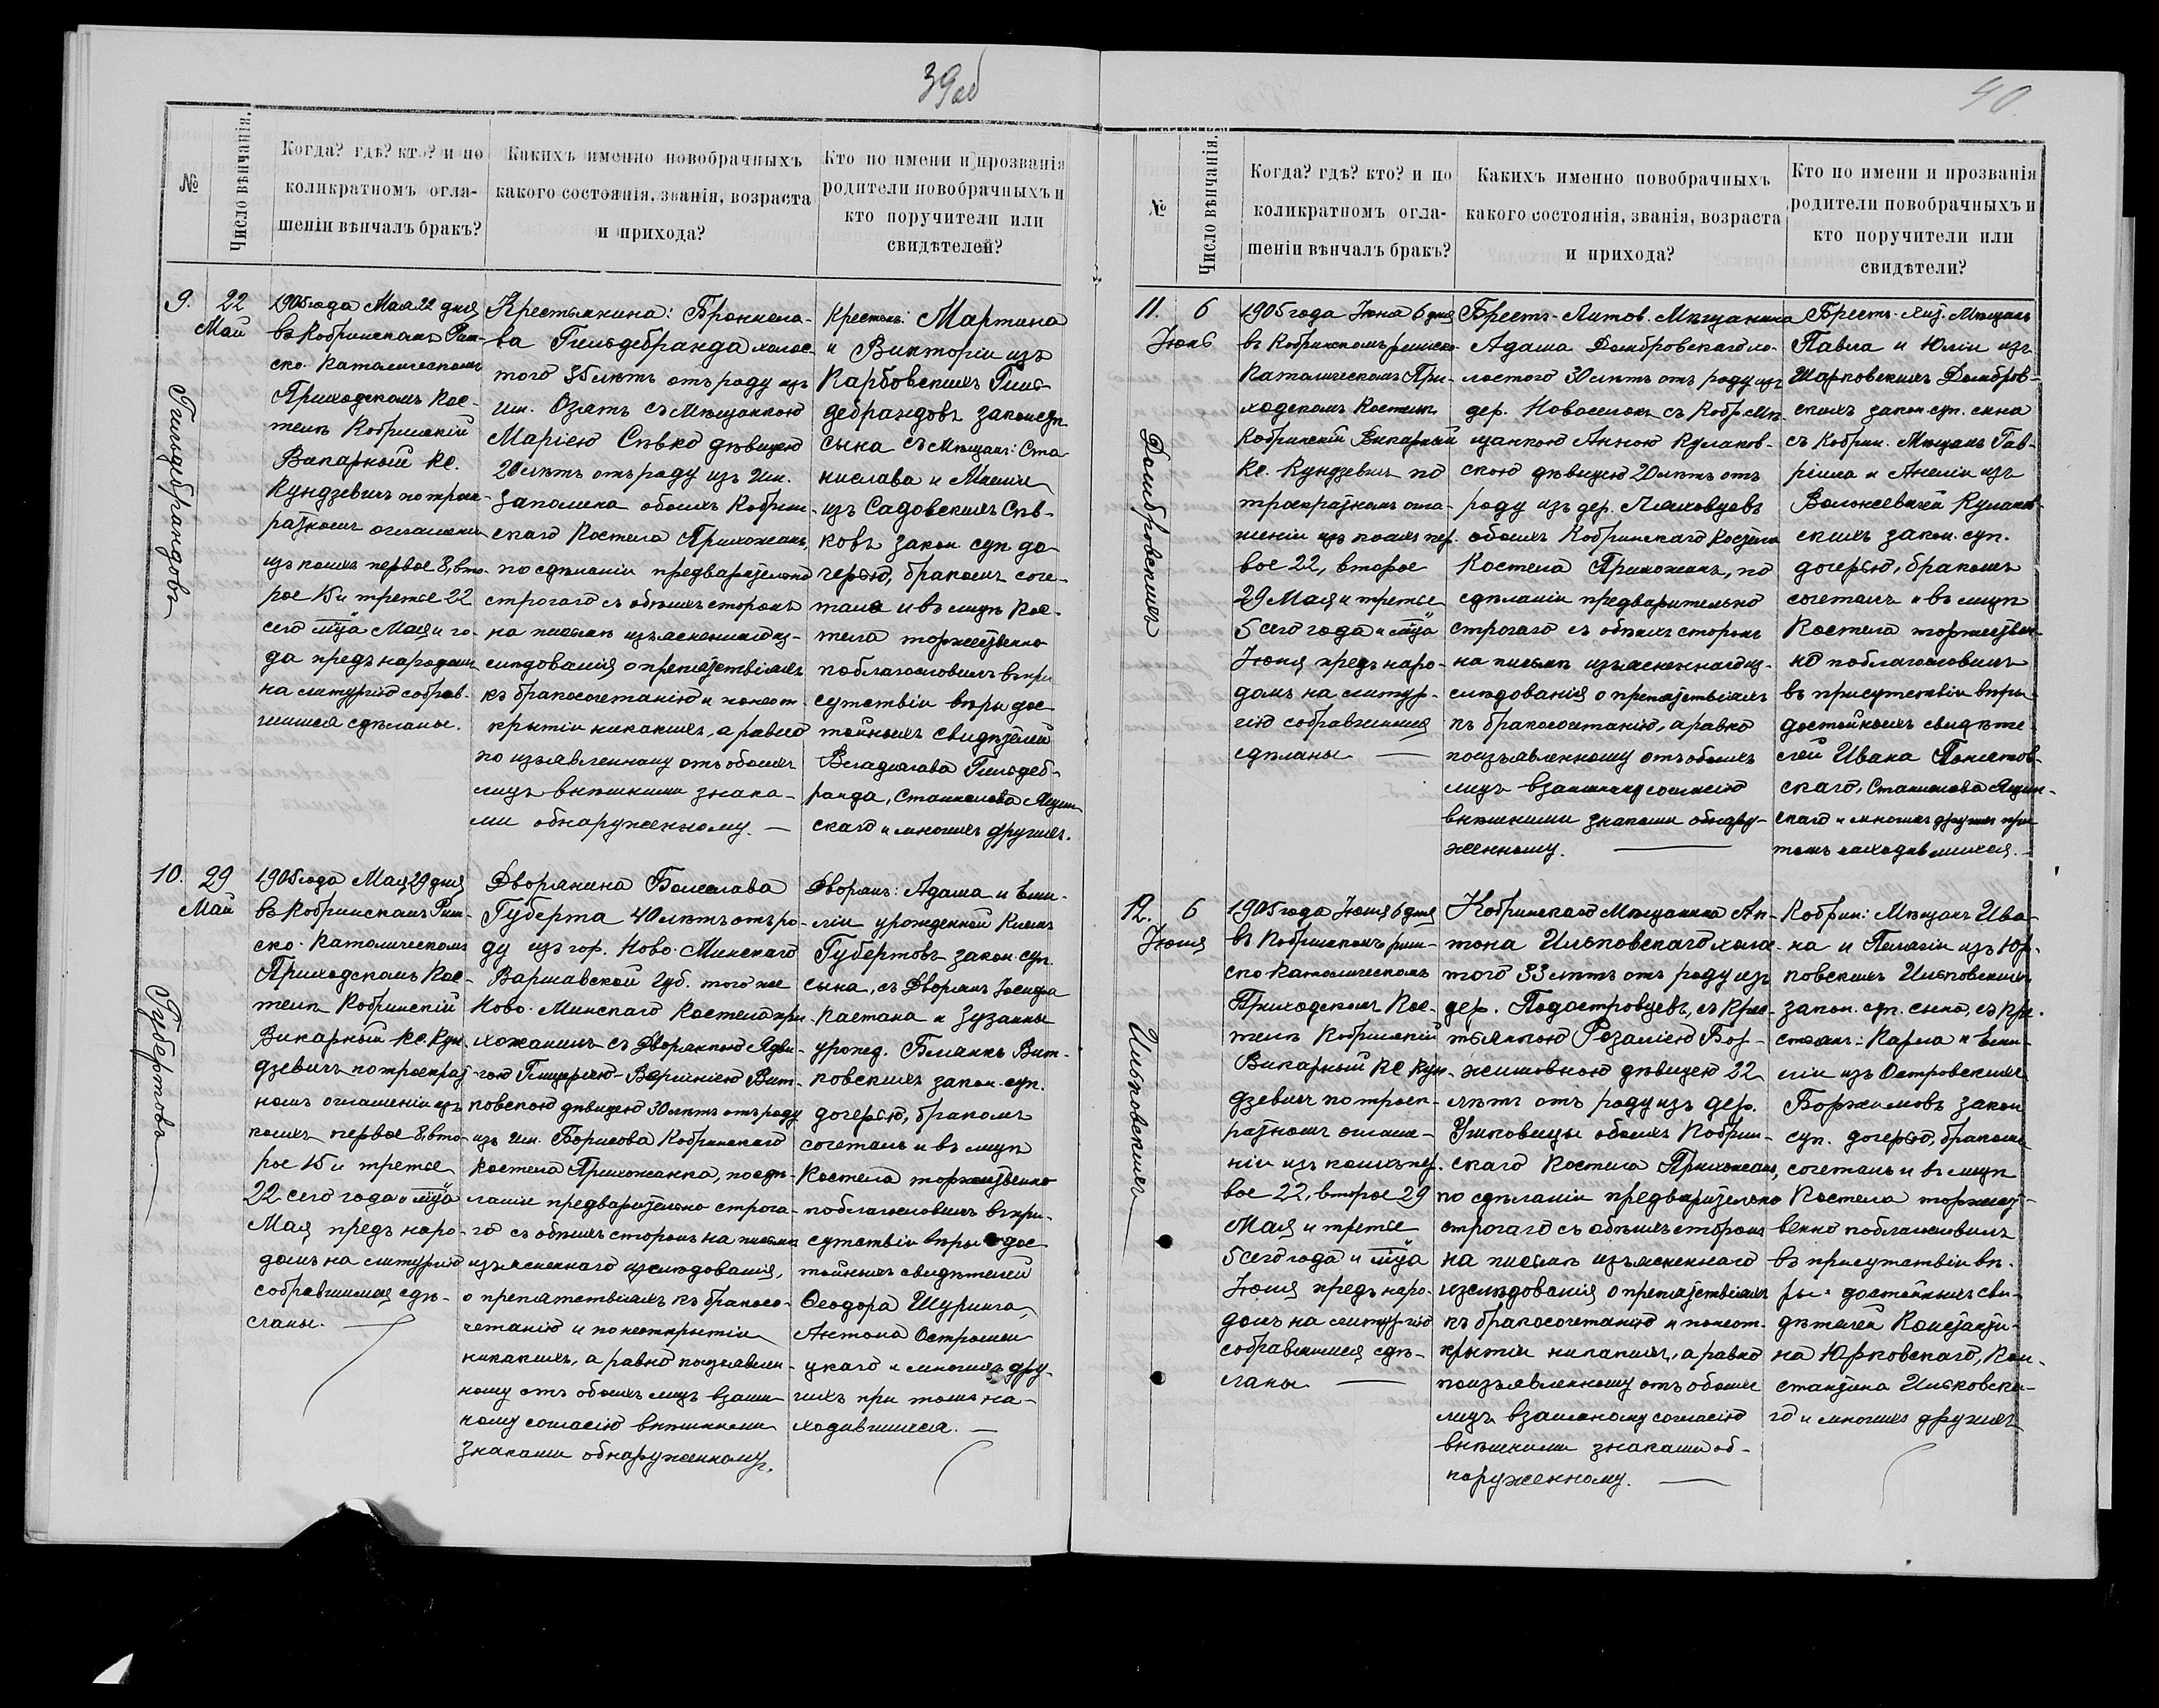 39об
№
Число вѣнчанія.
Когда? гдѣ? кто? и по
коликратномъ огла-
шеніи вѣнчалъ бракъ?
Какихъ именно новобрачныхъ
какого состоянія, званія, возраста
и прихода?
Кто по имени и прозванія
родители новобрачныхъ и
кто поручители или
свидѣтелей?
9.
22
Май
Гильдебрандовъ
1905 года Мая 22 дня
въ Кобринскомъ Рим-
ско-Католическомъ
Приходскомъ Кос-
телѣ Кобринскій
Викарный Кс.
Кундзевичъ по троек-
ратномъ оглашеніи
изъ коихъ первое 8, вто-
рое 15 и третье 22
сего м-ца Мая и го-
да предъ народомъ
на литургію собрав-
шимся сдѣланы.
Крестьянина: Бронисла-
ва Гильдебранда холос-
того 35 лѣтъ отъ роду изъ
им. Озятъ съ Мѣщанкою
Маріею Сѣвко дѣвицею
20 лѣтъ отъ роду изъ им.
Заполика обоихъ Кобрин-
скаго Костела Прихожанъ,
по сдѣланіи предварительно
строгаго съ обѣихъ сторонъ
на письмѣ изъясненнаго из-
слѣдованія о препятствіяхъ
къ бракосочетанію и неот-
крытіи никакихъ, а равно
по изъявленному отъ обоихъ
лицъ внѣшними знака-
ми обнаруженному. —
Крестьян: Мартина
и Викторіи изъ
Карбовскихъ Гиль-
дебрандовъ закон. суп.
сына съ Мѣщан: Ста-
нислава и Маріи
изъ Садовскихъ Сѣв-
ковъ закон суп до-
черью, бракомъ соче-
талъ и въ лицѣ Кос-
тела торжественно
поблагословилъ въ при
сутствіи вѣры дос-
тойныхъ свидѣтелей
Владислава Гильдеб-
ранда, Станислава Ящин-
скаго и многихъ другихъ.
10.
29
Май
Губертовъ
1905 года Мая 29 дня
въ Кобринскомъ Рим-
ско-Католическомъ
Приходскомъ Кос-
телѣ Кобринскій
Викарный Кс Кун-
дзевичъ по троекрат-
номъ оглашеніи изъ
коихъ первое 8, вто-
рое 15 и третье
22 сего года и м-ца
Мая предъ наро-
домъ на литургію
собравшимся сдѣ-
ланы.
Дворянина Болеслава
Губерта 40 лѣтъ отъ ро-
ду изъ гор. Ново-Минскаго
Варшавской губ. того же
Ново-Минскаго Костела при-
хожанинъ съ Дворянкою Ядви-
гою Глицеріею-Виргиніею Вит-
ковскою дѣвицею 30 лѣтъ отъ роду
изъ им. Борисова Кобринскаго
Костела Прихожанка, по сдѣ-
ланіи предварительно строга-
го съ обѣихъ сторонъ на письмѣ
изъясненнаго изслѣдованія,
о препятствіяхъ къ бракосо-
четанію и по неоткрытіи
никакихъ, а равно по изъявлен-
ному отъ обоихъ лицъ взаим-
ному согласію внѣшними
знаками обнаруженному.
Дворянъ: Адама и Еми-
ліи урожденной
Губертовъ закон. суп.
сына, съ Дворянъ Іосифа
Каетана и Зузанны
урожд. Бланкъ Вит-
ковскихъ закон. суп.
дочерью, бракомъ
сочеталъ и въ лицѣ
Костела торжественно
поблагословилъ въ при-
сутствіи вѣры дос-
тойныхъ свидѣтелей
Ѳеодора Шуринга,
Антона Остромен-
цкаго и многихъ дру-
гихъ при томъ на-
ходившихся. —
40
№
Число вѣнчанія.
Когда? гдѣ? кто? и по
коликратномъ огла-
шеніи вѣнчалъ бракъ?
Какихъ именно новобрачныхъ
какого состоянія, званія, возраста
и прихода?
Кто по имени и прозванія
родители новобрачныхъ и
кто поручители или
свидѣтели?
11.
6
Іюнь
Домбровскихъ
1905 года Іюня 6 дня
въ Кобринскомъ римско-
Католическомъ При-
ходскомъ Костелѣ
Кобринскій Викарный
Кс. Кундзевичъ по
троекратномъ огла-
шеніи изъ коихъ пер-
вое 22, второе
29 Мая и третье
5 сего года и м-ца
Іюня предъ наро-
домъ на литур-
гію собравшимся
сдѣланы —
Брестъ-Литов. Мѣщанина
Адама Домбровскаго хо-
лостого 30 лѣтъ отъ роду изъ
дер. Новоселокъ съ Кобр. Мѣ-
щанкою Анною Кулаков-
скою дѣвицею 20 лѣтъ отъ
роду изъ дер. Пяховцевъ
обоихъ Кобринскаго Костела
Костела Прихожанъ, по
сдѣланіи предварительно
строгаго съ обѣихъ сторонъ
на письмѣ изъясненнаго из-
слѣдованія о препятствіяхъ
къ бракосочетанію, а равно
по изъявленному отъ обоихъ
лицъ взаимному согласію
внѣшними знаками обнару-
женному. —
Брестъ-Лит. Мѣщанъ
Павла и Юліи изъ
Шарковскихъ Домбров-
скихъ закон. суп. сына
съ Кобрин. Мѣщанъ Гав-
ріила и Анеліи изъ
Волосевичей Кулаков-
скихъ закон. суп.
дочерью, бракомъ
сочеталъ и въ лицѣ
Костела торжествен-
но поблагословилъ
въ присутствіи вѣры
достойныхъ свидѣте-
лей Ивана Понятов-
скаго, Станислава Ящин-
скаго и многихъ другихъ при
томъ находившихся. —
12.
6
Іюня
Ильковскихъ
1905 года Іюня 6 дня
въ Кобринскомъ рим-
ско-католическомъ
Приходскомъ Кос-
телѣ Кобринскій
Викарный Кс Кун-
дзевичъ по троек-
ратномъ оглаше-
ніи изъ коихъ пер-
вое 22, второе 29
Мая и третье
5 сего года и м-ца
Іюня предъ наро-
домъ на литургію
собравшимся сдѣ-
ланы —
Кобринскаго Мѣщанина Ан-
тона Ильковскаго холос-
того 33 лѣтъ отъ роду изъ
дер. Подостровцевъ, съ Крес-
тьянкою Розаліею Бор-
жимовною дѣвицею 22
лѣтъ отъ роду изъ дер.
Утковицы обоихъ Кобрин-
скаго Костела Прихожанъ,
по сдѣланіи предварительно
строгаго съ обѣихъ сторонъ
на письмѣ изъясненнаго
изслѣдованія о препятствіяхъ
къ бракосочетанію и по неот-
крытіи никакихъ, а равно
по изъявленному отъ обоихъ
лицъ взаимному согласію
внѣшними знаками об-
наруженному. —
Кобрин: Мѣщанъ Ива-
на и Пелагіи изъ Юр-
ковскихъ Ильковскихъ
закон. суп. сына, съ Кре-
стьян: Карла и Еми-
ліи изъ Островскихъ
Боржимовъ закон
суп. дочерью, бракомъ
сочеталъ и въ лицѣ
Костела торжест-
венно поблагословилъ
въ присутствіи вѣ-
ры-достойныхъ сви-
дѣтелей Константи-
на Юрковскаго, Кон-
стантина Ильковска-
го и многихъ другихъ